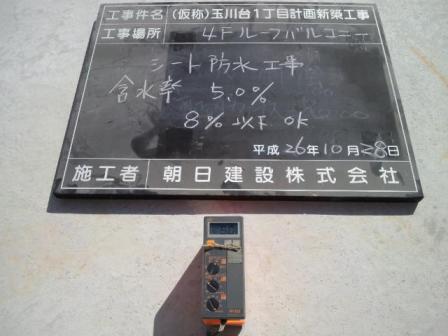 工事件名 (仮称)玉川台1丁目計画新築工事
工事場所 4Fルーフバルコニー
シート防水工事
含水率 5.0%
8%以下 OK
平成26年10月28日
施工者 朝日建設株式会社